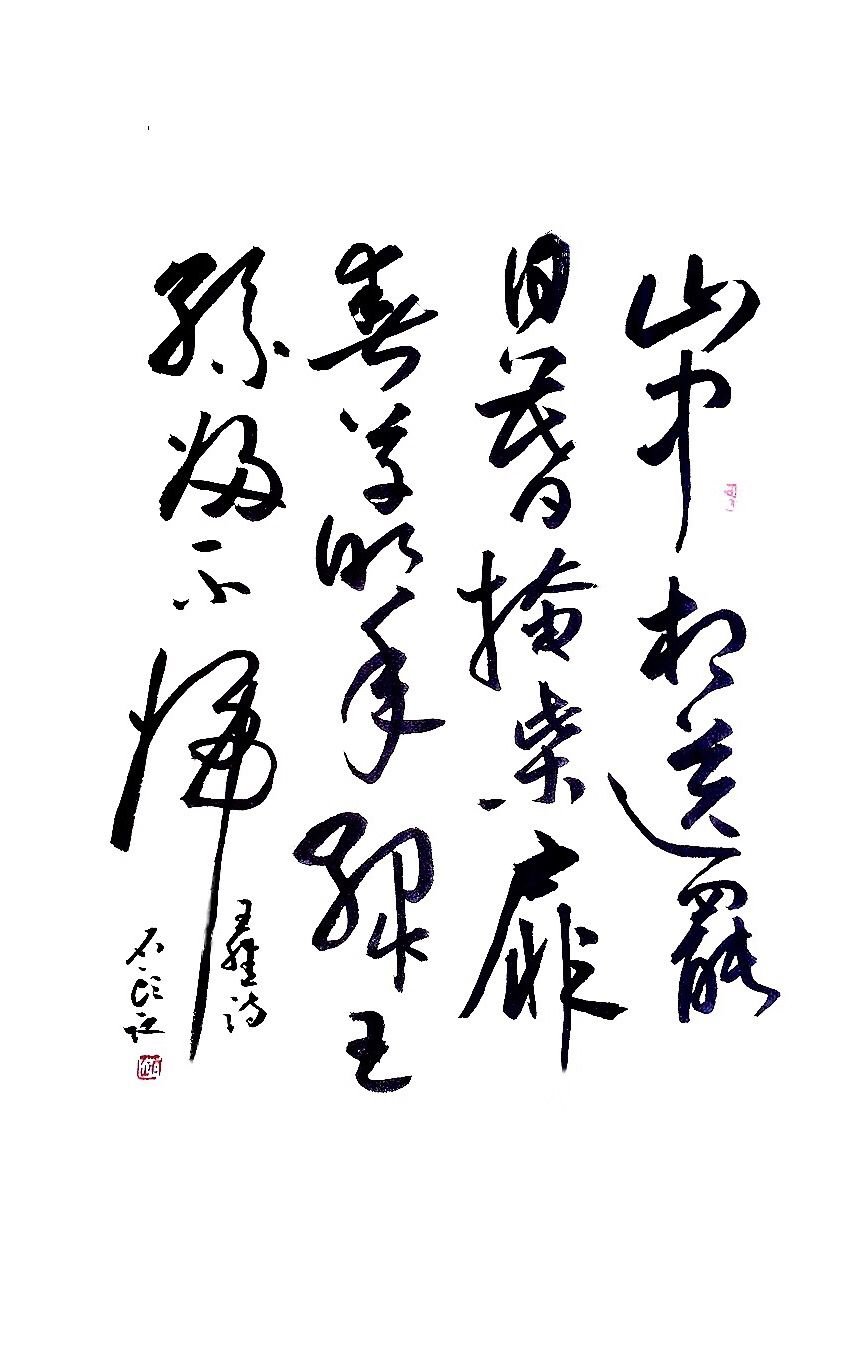 山中相送罷
日暮掩柴扉
春草明年綠王
孫歸不歸
王維詩